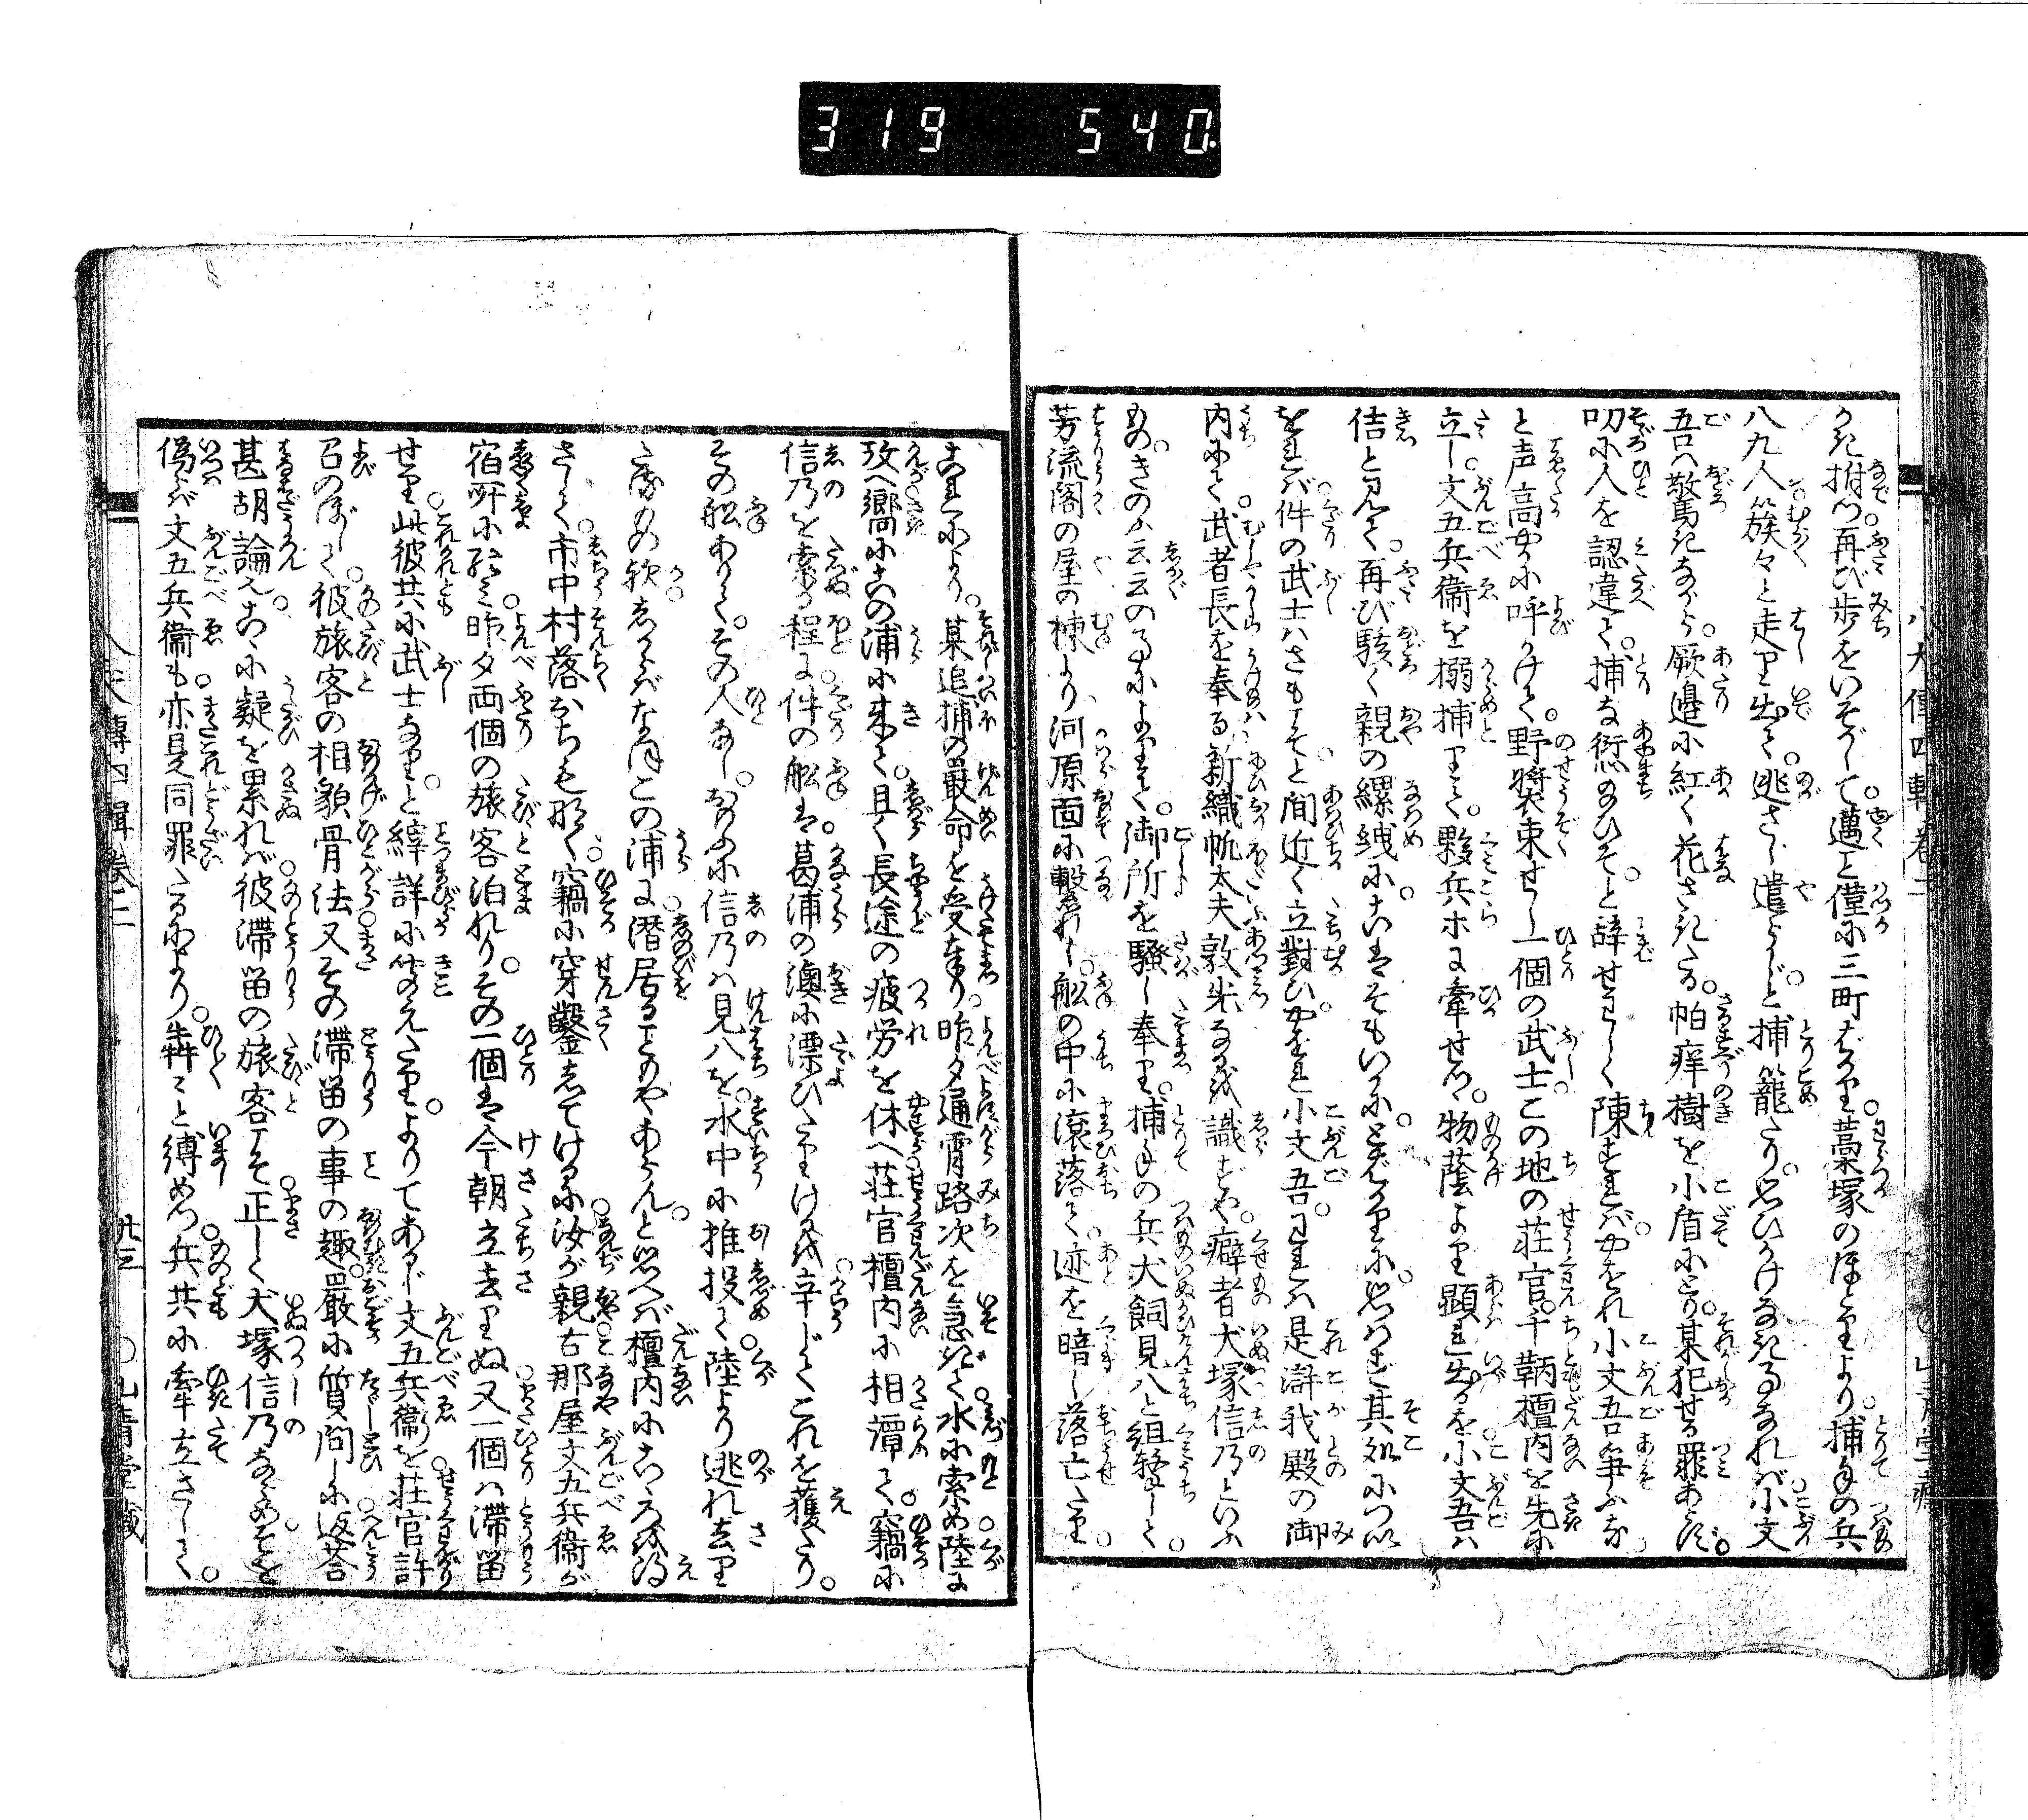 319 540.
かき拊つ。再び歩をいそがして。邁こと僅に三町ばかり。藁塚のほとりより。捕手の兵
八九人。簇々と走り出て。逃さじ遣らじと捕籠たり。思ひかけなき事なれば。小文
吾は驚きながら。厥邉に紅く花さきたる。帕痒樹を小盾にとり。某犯せる罪あらず。
叨に人を認違て。捕な愆のひそと。辞せわしく陳ずれば。やをれ小文吾争ふな
と声高やかに呼かけて。野装束せし一個の武士。この地の荘官。千鞆檀内を先に
立し。文五兵衛を搦捕りて。夥兵ホに牽せつゝ。物蔭より顕れ出るを。小文吾は
佶と見て。再び駭く親の縲絏に。こはそもいかに。とばかりに。思はず其処につい
をれば。件の武士はさもこそと。間近く立對ひ。やをれ小文吾。われは是滸我殿の御
内にて。武者長を奉る。新織帆大夫敦光なるを識ずや。癖者犬塚信乃といふ
もの。きのふ云云の事によりて。御所を騒し奉り。捕手の兵犬飼見八と組撃して。
芳流閣の屋の棟より。河原面に繋れし。舩の中に滾落て。迹を暗し落亡たり。
これにより。某追捕の嚴命を受奉り。昨夕通宵路次を急ぎて。水に索め陸に
攷へ。嚮にこの浦に来て。且く長途の疲労を休へ。荘官檀内に相譚て。竊に
信乃を索る程に。件の舩は。葛浦の澳に漂ひたりけるを。辛じてこれを獲たり。
その舩ありて。その人なし。おもふに信乃は見八を。水中に推投て。陸より逃れ去り
たるもの歟。しからばなほこの浦に。潜居ることもやあらん。と思へば檀内にこゝろ得
さして。市中村落おちもなく。竊に穿鑿してけるに。汝が親古那屋文五兵衛が
宿所に。昨夕両個の旅客泊れり。その一個は今朝立去りぬ。又一個は滞留
せり。此彼共に武士なりと。縡詳に聞えたり。よりてあるじ文五兵衛を。荘官許
召のぼして。彼旅客の相貌骨法。又その滞留の事の趣。嚴に質問しに。返荅
甚胡論にして。こゝに疑を累れば。彼滞留の旅客こそ。正しく犬塚信乃なめれ。そを
偽らば文五兵衛も。亦是同罪たるにより。犇々と縛めつゝ。兵共に牽立さして。
八犬傳四輯巻二
廿三
○山青堂藏